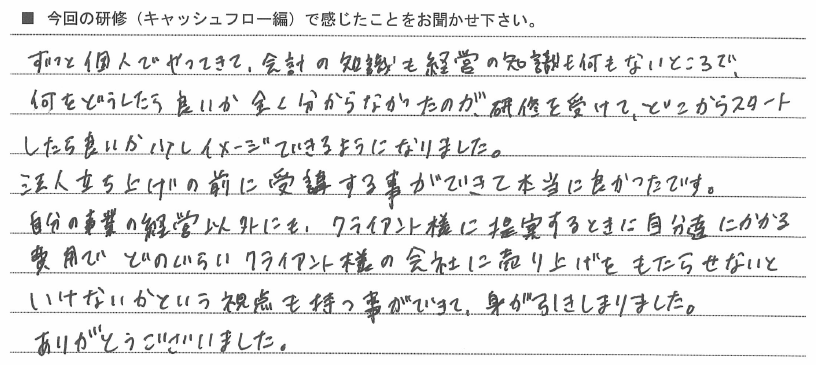 ■ 今回の研修（キャッシュフロー編）で感じたことをお聞かせ下さい。
ずっと個人でやってきて、会計の知識も経営の知識も何もないところで、
何をどうしたら良いか全く分からなかったのが、研修を受けて、どこからスタート
したら良いか少しイメージできるようになりました。
法人立ち上げの前に受講する事ができて本当に良かったです。
自分の事業の経営以外にも、クライアント様に提案するときに自分達にかかる
費用でどのぐらいクライアント様の会社に売り上げをもたらせないと
いけないかという視点も持つ事ができて、身が引きしまりました。
ありがとうございました。